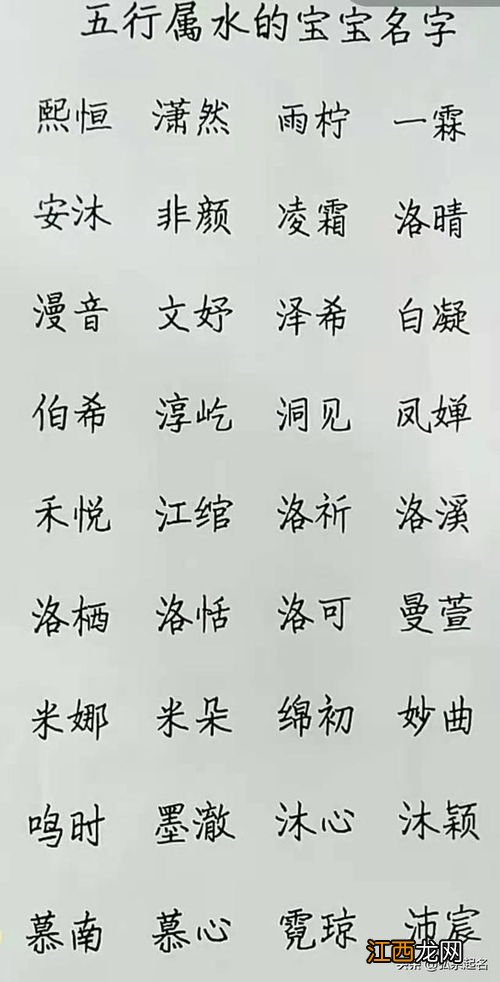 五行属水的宝宝名字
熙恒 潇然 雨柠 一霖
安沐 非颜 凌霜 洛晴
漫音 文妤 泽希 白凝
伯希 淳屹 洞见 凤婵
禾悦 江绾 洛祈 洛溪
洛栖 洛恬 洛可 曼萱
米娜 米朵 绵初 妙曲
鸣时 墨澈 沐心 沐颖
慕南 慕心 霓琼 沛宸
江西龙网
头条@弘宗起名